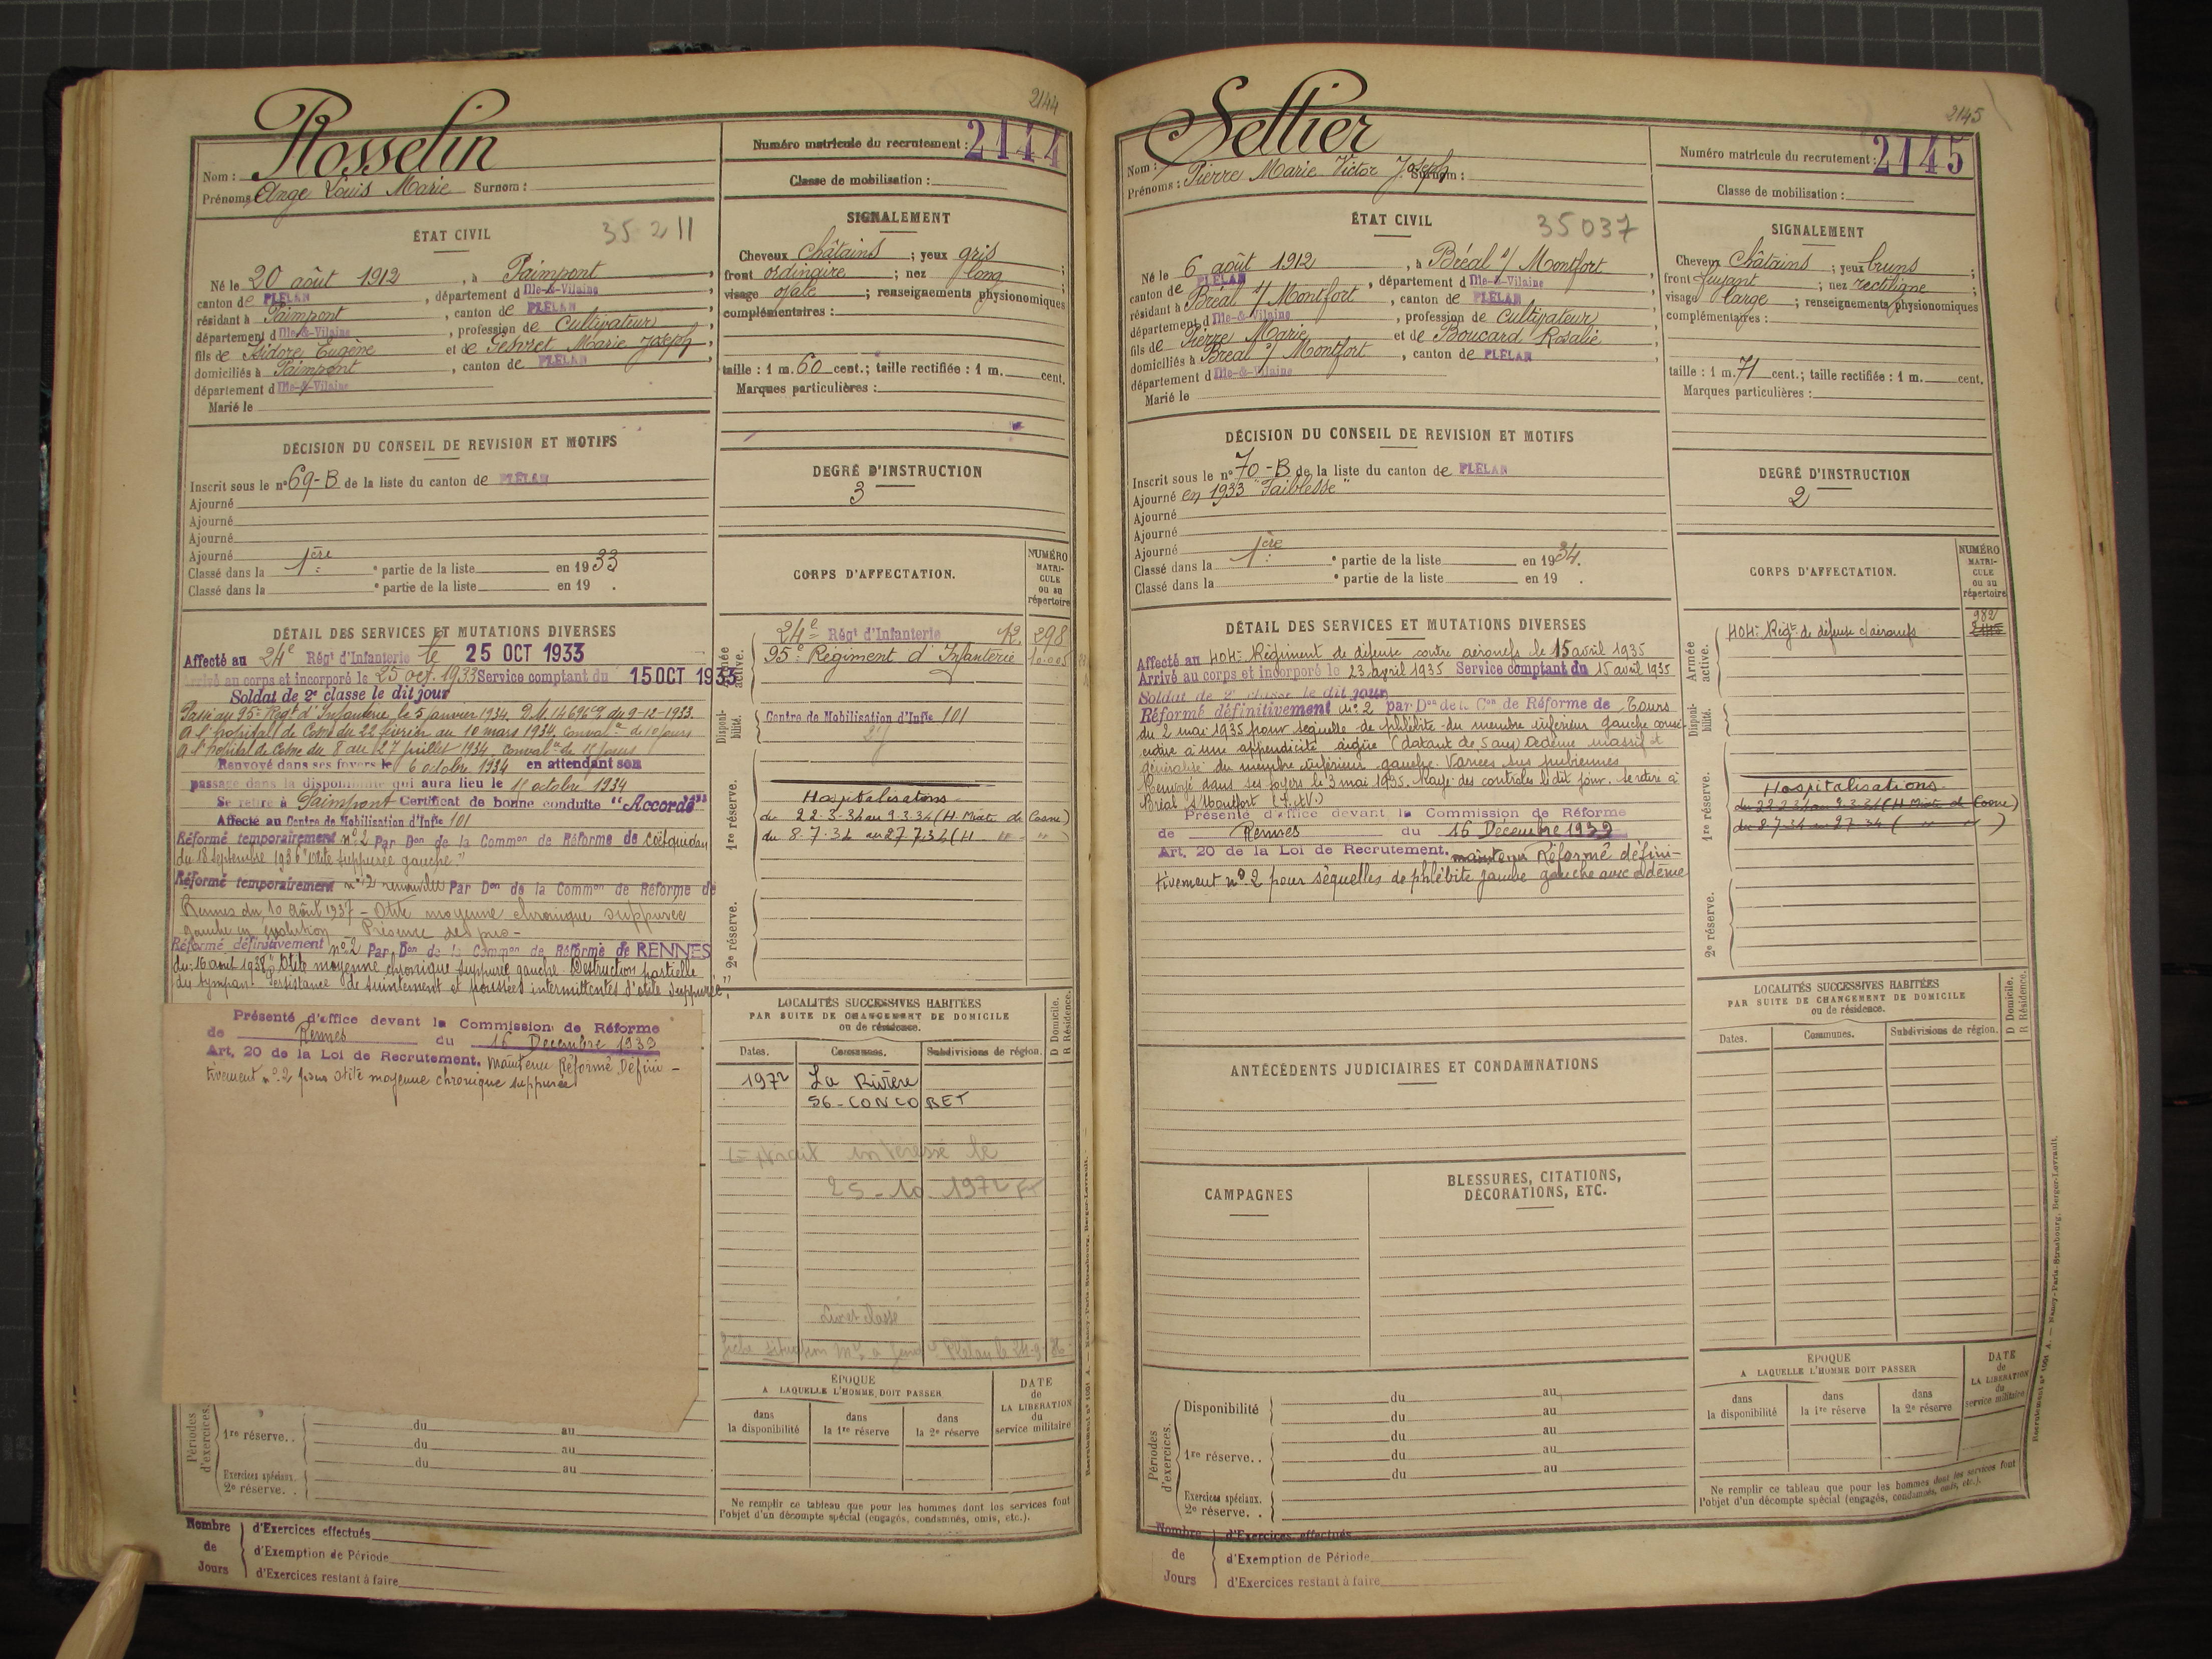 2144
Rosselin
Nom :
Prénoms Ange Louis Marie Surnom :
Numéro matricule du recrutement : 2144
Classe de mobilisation :
ÉTAT CIVIL
35 211
Né le 20 août 1912, à Paimpont,
canton de PLÉLAN, département d Ille-&-Vilaine
résidant à Paimpont, canton de PLÉLAN,
département d Ille-&-Vilaine, profession de Cultivateur,
fils de Isidore Eugène et de Marie Joseph,
domiciliés à Paimpont, canton de PLÉLAN
département d Ille-&-Vilaine
Marié le
SIGNALEMENT
Cheveux châtains ; yeux gris ;
front ordinaire ; nez long
visage ovale ; renseignements physionomiques
complémentaires :
taille : 1 m. 60 cent.; taille rectifiée : 1 m. cent.
Marques particulières :
DÉCISION DU CONSEIL DE REVISION ET MOTIFS
Inscrit sous le n° 69-B de la liste du canton de PLÉLAN
Ajourné
Ajourné
Ajourné
Ajourné
Classé dans la 1ère e partie de la liste en 1933
Classé dans la e partie de la liste en 19 .
DEGRÉ D'INSTRUCTION
3
DÉTAIL DES SERVICES ET MUTATIONS DIVERSES
Affecté au 24e Régt d'Infanterie le 25 OCT 1933
Arrivé au corps et incorporé le 25 oct. 1933 Service comptant du 15 OCT 1933
Soldat de 2e classe le dit jour
Passé au 95e Régt d'Infanterie le 5 janvier 1934. du 9-12-1933.
A l'hopital de Cosne du 22 février au 10 mars 1934. Conval. de 10 jours
A l'hopital de Cosne du 8 au 27 juillet 1934. Conval. de 15 jours
Renvoyé dans ses foyers le 6 octobre 1934 en attendant son
passage dans la disponibilité qui aura lieu le 15 octobre 1934
Se retire à Paimpont Certificat de bonne conduite "Accordé"
Affecté au Centre de Mobilisation d'Infie 101
Réformé temporairement n° 2 Par Don de la Common de Réforme de Coëtquidan
du 18 septembre 1936 "otite suppurée gauche"
Réformé temporairement n° 2 renouvelée Par Don de la Common de Réforme de
Rennes du 10 août 1937 - Otite moyenne chronique suppurée
gauche en évolution - Présence de pus -
Réformé définitivement n° 2 Par Don de la Common de Réforme de RENNES
du 16 août 1938 "Otite moyenne chronique suppurée gauche. Destruction partielle
du tympan. Persistance de suintement et poussées intermittentes d'otite suppurée"
Présenté d'office devant la Commission de Réforme
de Rennes du 16 Décembre 1939
Art. 20 de la Loi de Recrutement. Maintenu Réformé Défini-
tivement n° 2 pour otite moyenne chronique suppurée
CORPS D'AFFECTATION.
NUMÉRO MATRI-CULE ou au répertoire
Armée active.
24e Régt d'Infanterie 298
95e Régiment d'Infanterie 10.005
Disponi-bilité.
Centre de Mobilisation d'Infie 101
1re réserve.
Hospitalisations
du 22-2-34 au 9.3.34 (H. Mixte de Cosne)
du 8-7-34 au 27.7.34 (H " - ")
2e réserve.
LOCALITÉS SUCCESSIVES HABITÉES
PAR SUITE DE CHANGEMENT DE DOMICILE
ou de résidence.
D Domicile.
R Résidence.
Dates. Communes. Subdivisions de région.
1972 La Rivière
56-CONCORET
Extrait intéressé le
25-10-1972
Livret classé
Périodes d'exercices.
1re réserve..
du au
du au
du au
Exercices spéciaux.
2e réserve. .
ÉPOQUE
A LAQUELLE L'HOMME DOIT PASSER
dans la disponibilité
dans la 1re réserve
dans la 2e réserve
DATE de LA LIBÉRATION du service militaire
Ne remplir ce tableau que pour les hommes dont les services font
l'objet d'un décompte spécial (engagés, condamnés, omis, etc.).
Nombre de Jours
d'Exercices effectués
d'Exemption de Période
d'Exercices restant à faire
2145
Sellier
Nom :
Prénoms : Pierre Marie Victor Joseph Surnom :
Numéro matricule du recrutement : 2145
Classe de mobilisation :
ÉTAT CIVIL
35037
Né le 6 août 1912, à Bréal s/ Montfort,
canton de PLÉLAN, département d Ille-&-Vilaine
résidant à Bréal s/ Montfort, canton de PLÉLAN
département d Ille-&-Vilaine, profession de Cultivateur,
fils de Pierre Marie et de Boucard Rosalie
domiciliés à Bréal s/ Montfort, canton de PLÉLAN
département d Ille-&-Vilaine
Marié le
SIGNALEMENT
Cheveux châtains ; yeux bruns ;
front fuyant ; nez rectiligne
visage large ; renseignements physionomiques
complémentaires :
taille : 1 m. 71 cent.; taille rectifiée : 1 m. cent.
Marques particulières :
DÉCISION DU CONSEIL DE REVISION ET MOTIFS
Inscrit sous le n° 70-B de la liste du canton de PLÉLAN
Ajourné en 1933 "Faiblesse"
Ajourné
Ajourné
Ajourné
Classé dans la 1ère e partie de la liste en 1934.
Classé dans la e partie de la liste en 19 .
DEGRÉ D'INSTRUCTION
2
DÉTAIL DES SERVICES ET MUTATIONS DIVERSES
Affecté au 404e Régiment de défense contre aéronefs le 15 avril 1935
Arrivé au corps et incorporé le 23 avril 1935 Service comptant du 15 avril 1935
Soldat de 2e classe le dit jour
Réformé définitivement n° 2 par Don de la Con de Réforme de Tours
du 2 mai 1935 pour séquelle de phlébite du membre inférieur gauche consé-
cutive à une appendicite aigüe (datant de 5 ans) Oedème massif et
généralisé du membre inférieur gauche. Varices sus pubiennes
Renvoyé dans ses foyers le 3 mai 1935. Rayé des contrôles le dit jour. Se retire à
Bréal s/ Montfort (I. &V.)
Présenté d'office devant la Commission de Réforme
de Rennes du 16 Décembre 1939
Art. 20 de la Loi de Recrutement. maintenu Réformé défini-
tivement n° 2 pour séquelles de phlébite jambe gauche avec oedème
CORPS D'AFFECTATION.
NUMÉRO MATRI-CULE ou au répertoire
Armée active.
404e Régt de défense c/aéronefs 982
Disponi-bilité.
1re réserve.
Hospitalisations.
du 22.2.34 au 9.3.34 (H. Mixte de Cosne)
du 8.7.34 au 27.34 ( " " )
2e réserve.
LOCALITÉS SUCCESSIVES HABITÉES
PAR SUITE DE CHANGEMENT DE DOMICILE
ou de résidence.
D Domicile.
R Résidence.
Dates. Communes. Subdivisions de région.
ANTÉCÉDENTS JUDICIAIRES ET CONDAMNATIONS
CAMPAGNES
BLESSURES, CITATIONS,
DÉCORATIONS, ETC.
Périodes d'exercices.
Disponibilité
du au
du au
1re réserve. .
du au
du au
du au
Exercices spéciaux.
2e réserve. .
ÉPOQUE
A LAQUELLE L'HOMME DOIT PASSER
dans la disponibilité
dans la 1re réserve
dans la 2e réserve
DATE de LA LIBÉRATION du service militaire
Ne remplir ce tableau que pour les hommes dont les services font
l'objet d'un décompte spécial (engagés, condamnés, omis, etc.).
Nombre de Jours
d'Exercices effectués
d'Exemption de Période
d'Exercices restant à faire